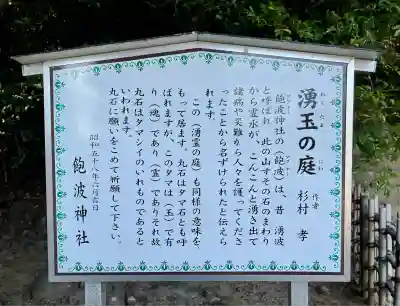 湧玉の庭
わくたま
にわ
作者
杉村 孝
飽波神社の(飽波)は、昔、湧波
と呼ばれ、此の山すその石のまわり
から霊水が、こんこんと湧き出て
諸病や災難から人々を護ってくださ
ったことから名ずけられたと伝えら
れます。
この(湧霊の庭)も同様の意味を
もって居ます。丸石はタマ石とも呼
ばれますが、このタマは(玉)で有
り(魂)であり(霊)でありそれ故
丸石はタマシイのいれものであると
いわれます。
丸石に願いをこめて祈願して下さい。
昭和五十八年六月吉日
飽波神社